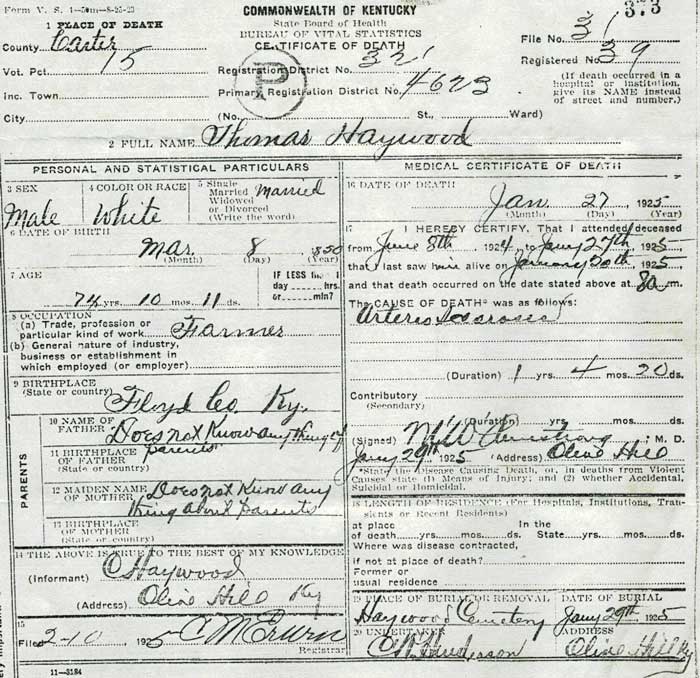 Form V. S. 1-50m-8-25-23
COMMONWEALTH OF KENTUCKY
State Board of Health
BUREAU OF VITAL STATISTICS
CERTIFICATE OF DEATH
373
1 PLACE OF DEATH
County Carter
Vot. Pct. 15
Inc. Town
City (No. St., Ward)
Registration District No. 321
Primary Registration District No. 4623
P
File No. 31
Registered No. 39
(If death occurred in a hospital or institution, give its NAME instead of street and number.)
2 FULL NAME Thomas Haywood
PERSONAL AND STATISTICAL PARTICULARS
3 SEX
Male
4 COLOR OR RACE
White
5 Single
Married
Widowed
or Divorced
(Write the word)
Married
6 DATE OF BIRTH
Mar 8 1850
(Month) (Day) (Year)
7 AGE
74 yrs. 10 mos. 11 ds.
IF LESS
day hrs.
or min?
8 OCCUPATION
(a) Trade, profession or
particular kind of work Farmer
(b) General nature of industry,
business or establishment in
which employed (or employer)
9 BIRTHPLACE
(State or country)
Floyd Co Ky.
PARENTS
10 NAME OF
FATHER Does not Know any thing of
11 BIRTHPLACE
OF FATHER parents
(State or country)
12 MAIDEN NAME
OF MOTHER Does not Know any
thing about Parents
13 BIRTHPLACE
OF MOTHER
(State or country)
14 THE ABOVE IS TRUE TO THE BEST OF MY KNOWLEDGE
(Informant) C Haywood
(Address) Olive Hill Ky
15
Filed 2-10 1925 C M Erwin
Registrar
11—3184
MEDICAL CERTIFICATE OF DEATH
16 DATE OF DEATH
Jan 27 1925
(Month) (Day) (Year)
17 I HEREBY CERTIFY, That I attended deceased
from June 8th 1924, to Jany 27th, 1925
that I last saw him alive on January 20th 1925
and that death occurred on the date stated above at 8a m.
The CAUSE OF DEATH* was as follows:
Arterio Sclerosis
(Duration) 1 yrs. 4 mos. 20 ds.
Contributory
(Secondary)
(Duration) yrs. mos. ds.
(Signed) Armstrong, M. D.
Jany 29th 1925 (Address) Olive Hill
*State the Disease Causing Death, or, in deaths from Violent
Causes state (1) Means of Injury; and (2) whether Accidental,
Suicidal or Homicidal.
18 LENGTH OF RESIDENCE (For Hospitals, Institutions, Tran-
sients or Recent Residents)
at place In the
of death yrs. mos. ds. State yrs. mos. ds.
Where was disease contracted,
if not at place of death?
Former or
usual residence
19 PLACE OF BURIAL OR REMOVAL DATE OF BURIAL
Haywood Cemetery Jany 29th 1925
20 UNDERTAKER ADDRESS
Henderson Olive Hill Ky